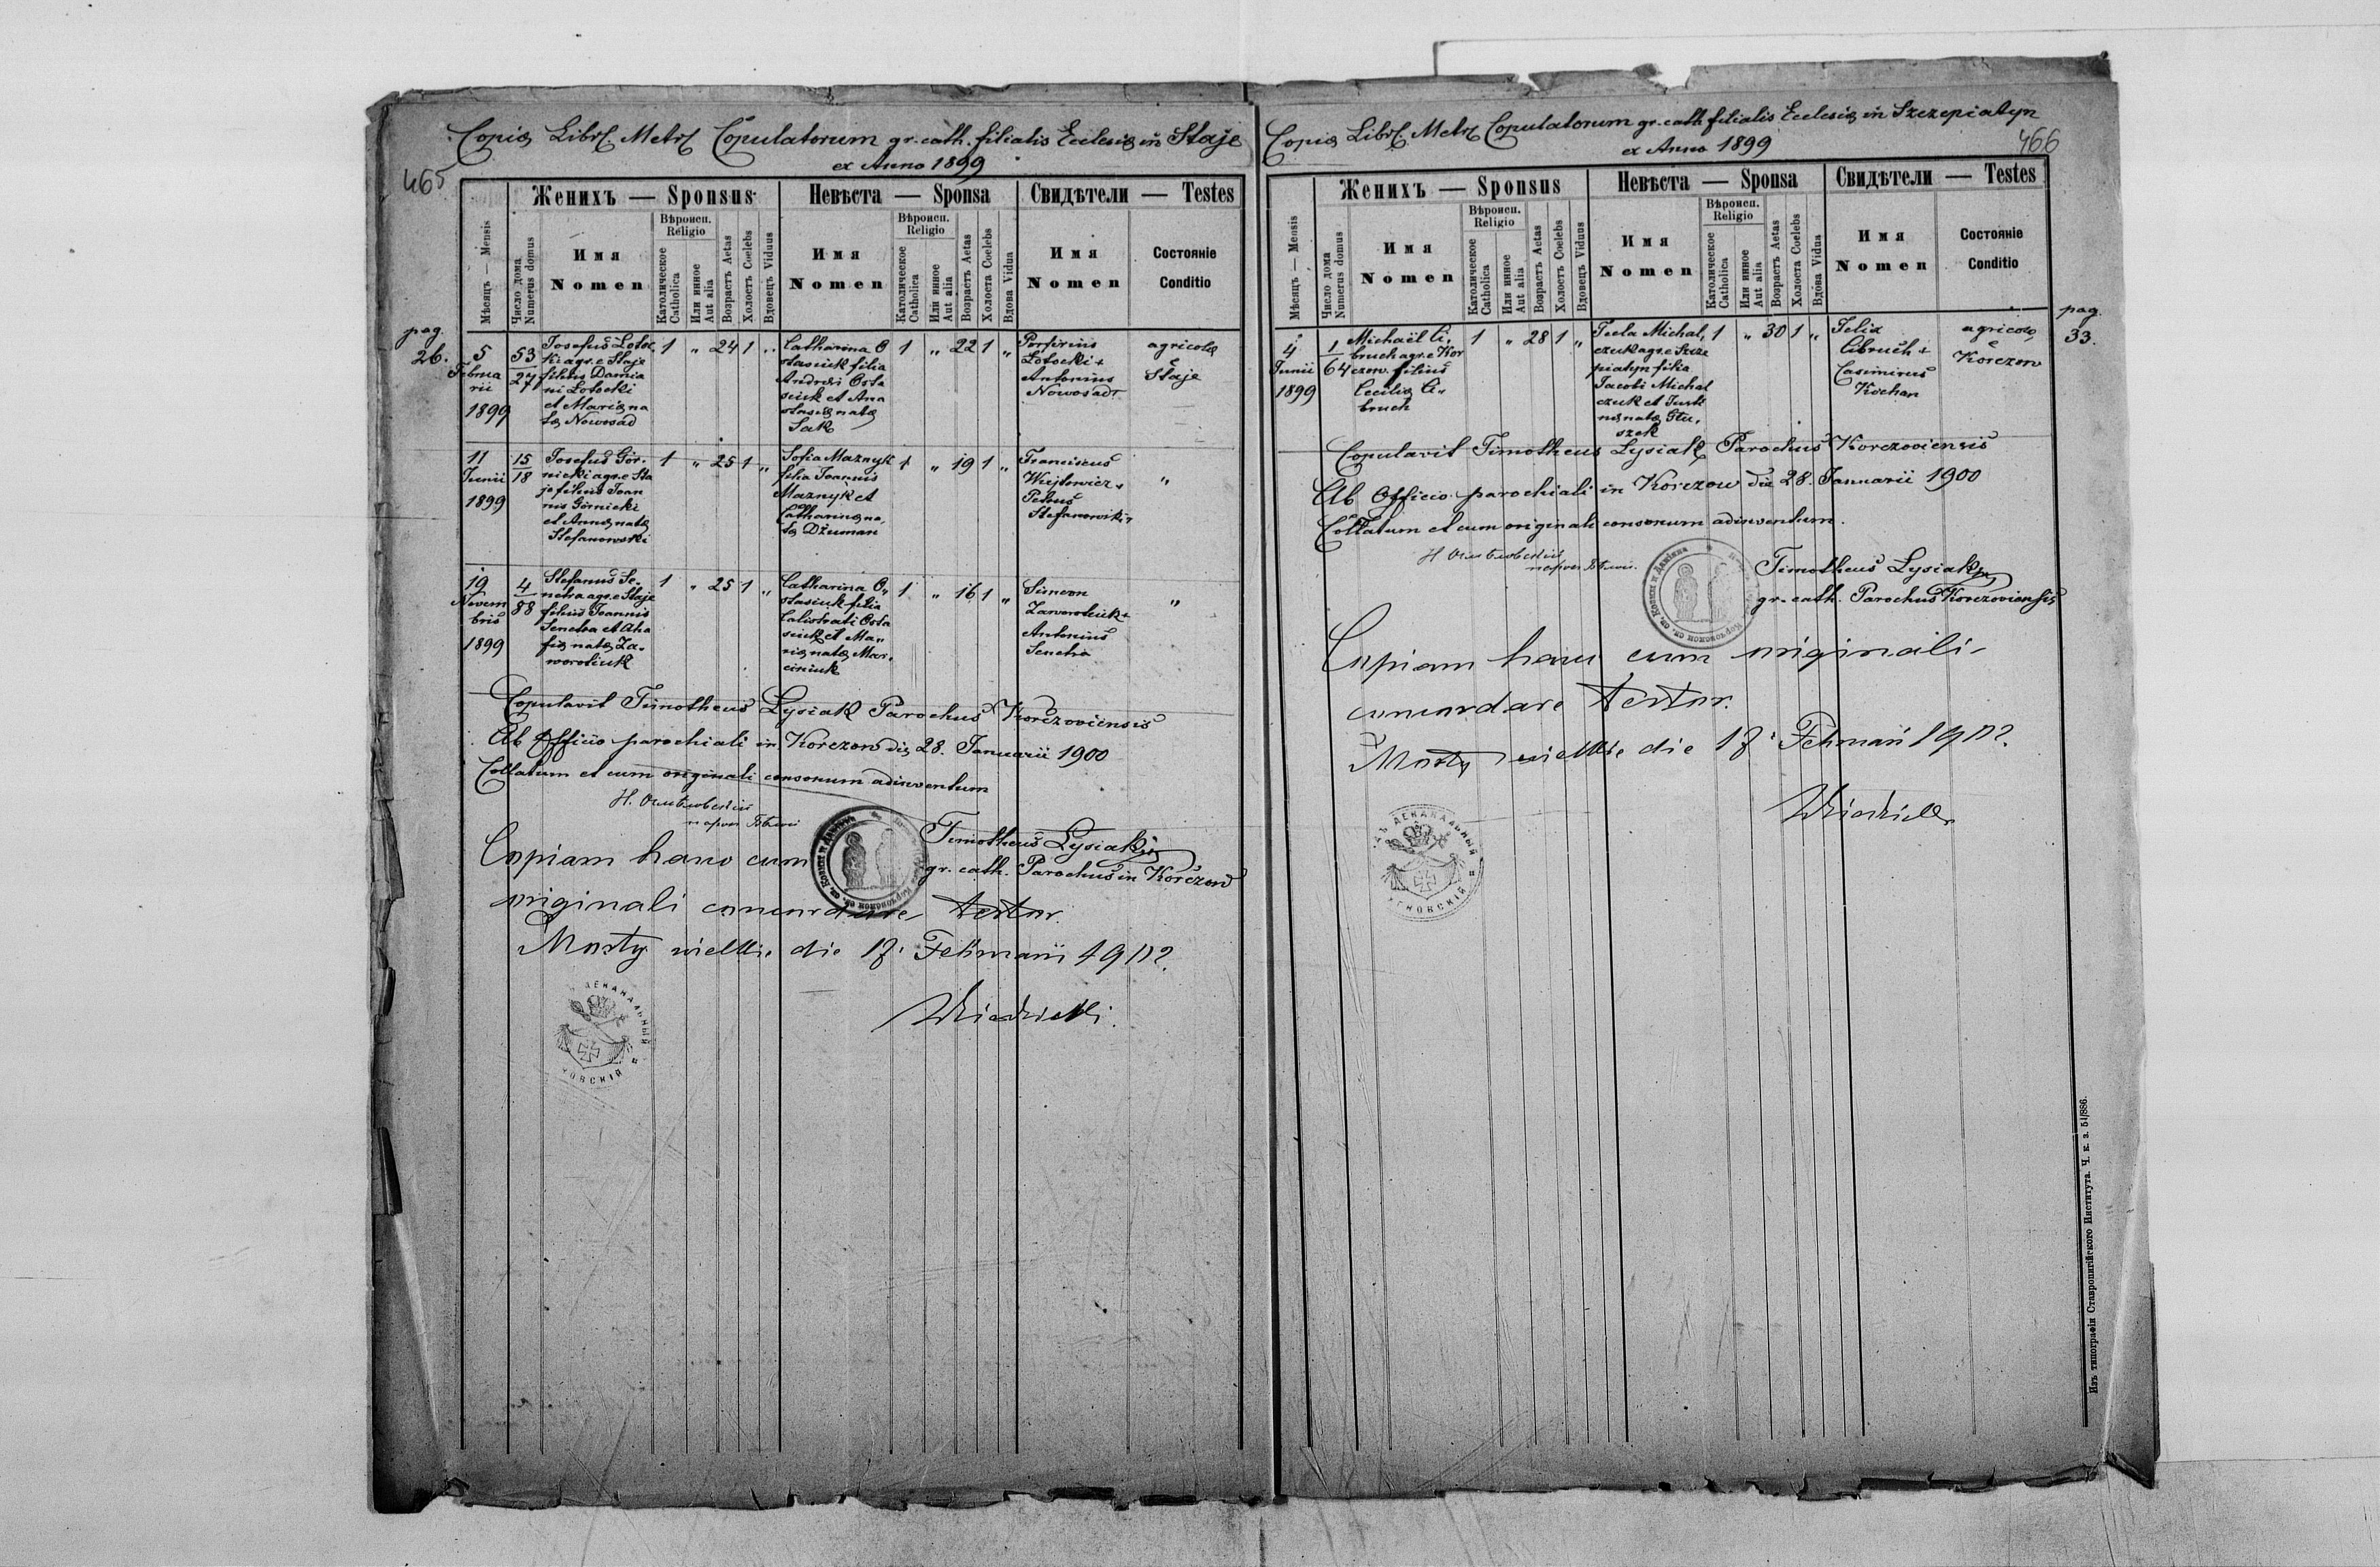 Copia Libri Metr. Copulatorum gr. cath. filialis Ecclesiæ in Staje
ex Anno 1899
465
Женихъ — Sponsus
Невѣста — Sponsa
Свидѣтели — Testes
Мѣсяцъ — Mensis
Число дома
Numerus domus
Имя
Nomen
Вѣроисп.
Religio
Католическое
Catholica
Или инное
Aut alia
Возрастъ Aetas
Холостъ Coelebs
Вдовецъ Viduus
Имя
Nomen
Вѣроисп.
Religio
Католическое
Catholica
Или инное
Aut alia
Возрастъ Aetas
Холоста Coelebs
Вдова Vidua
Имя
Nomen
Состояніе
Conditio
pag.
26.
5
Februa
rii
1899
53
27
Josefus Łotoc
ki agr. e Staje
filius Damia
ni Łotocki
et Mariæ na
tæ Nowosad
1 " 24 1 "
Catharina O
stasiuk filia
Andrei Osta
siuk et Ana
stasiæ natæ
Sak
1 " 22 1 "
Porfirius
Łotocki +
Antonius
Nowosad
agricolæ
e
Staje
11
Junii
1899
15
18
Josefus Gór-
nicki agr. e Sta
je filius Joan
nis Górnicki
et Annæ natæ
Stefanowski
1 " 25 1 "
Sofia Maznyk
filia Joannis
Maznyk et
Catharinæ na-
tæ Dżuman
1 " 19 1 "
Franciscus
Wojtowicz +
Petrus
Stefanowski
"
19
Novem
bris
1899
4
88
Stefanus Se-
netra agr. e Staje
filius Joannis
Senetra et Aha
fiæ natæ Za-
worotiuk
1 " 25 1 "
Catharina O-
stasiuk filia
Calistrati Osta
siuk et Ma-
riæ natæ Mar-
ciniuk
1 " 16 1 "
Simeon
Zaworotiuk +
Antonius
Senetra
"
Copulavit Timotheus Lysiak Parochus Korczoviensis
Ab Officio parochiali in Korczow die 28. Januarii 1900
Collatum et cum originali consonum adinventum
Timotheus Lysiak
gr. cath. Parochus in Korczow
Copiam hanc cum
originali concordare testor.
Mosty wielkie die 17. Februarii 1902.
ДЕКАНАЛЬНЫЙ
Copia Libri Metr. Copulatorum gr. cath. filialis Ecclesiæ in Szczepiatyn
ex Anno 1899
466
Женихъ — Sponsus
Невѣста — Sponsa
Свидѣтели — Testes
Мѣсяцъ — Mensis
Число дома
Numerus domus
Имя
Nomen
Вѣроисп.
Religio
Католическое
Catholica
Или инное
Aut alia
Возрастъ Aetas
Холостъ Coelebs
Вдовецъ Viduus
Имя
Nomen
Вѣроисп.
Religio
Католическое
Catholica
Или инное
Aut alia
Возрастъ Aetas
Холоста Coelebs
Вдова Vidua
Имя
Nomen
Состояніе
Conditio
pag.
33.
4
Junii
1899
1
64
Michaël Ci-
bruch agr. e Kor
czow filius
Ceciliæ Ci-
bruch
1 " 28 1 "
Tecla Michal-
czuk agr. e Szcze
piatyn filia
Jacobi Michal
czuk et Justi
næ natæ Głu-
szek
1 " 30 1 "
Felix
Cibruch +
Casimirus
Kochan
agricolæ
e
Korczow
Copulavit Timotheus Lysiak Parochus Korczoviensis
Ab Officio parochiali in Korczow die 28. Januarii 1900
Collatum et cum originali consonum adinventum.
Timotheus Lysiak
gr. cath. Parochus Korczoviensis
Copiam hanc cum originali
concordare testor.
Mosty wielkie die 17. Februarii 1902.
ДЕКАНАЛЬНЫЙ
Изъ типографіи Ставропигійского Института. Ч. к. з. 51/886.